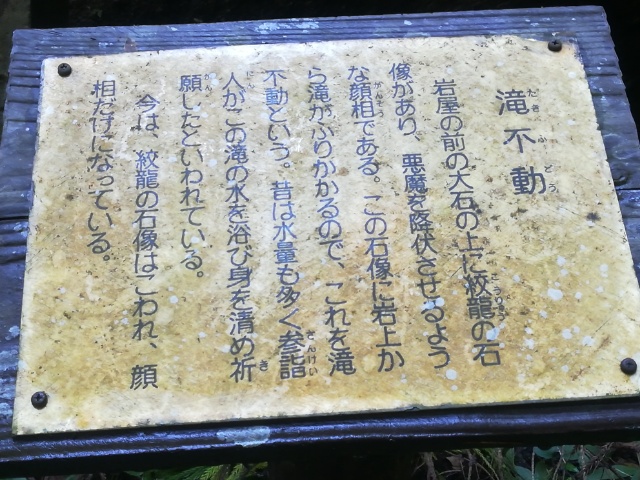 滝不動
たきふどう
岩屋の前の大石の上に絞龍の石
こうりゅう
像があり、悪魔を降伏させるよう
な顔相である。この石像に岩上か
がんそう
ら滝がふりかかるので、これを滝
不動という。昔は水量も多く参詣
さんけい
人がこの滝の水を浴び身を清め祈
にん
き
願したといわれている。
がん
今は、絞龍の石像はこわれ、顔
相だけになっている。